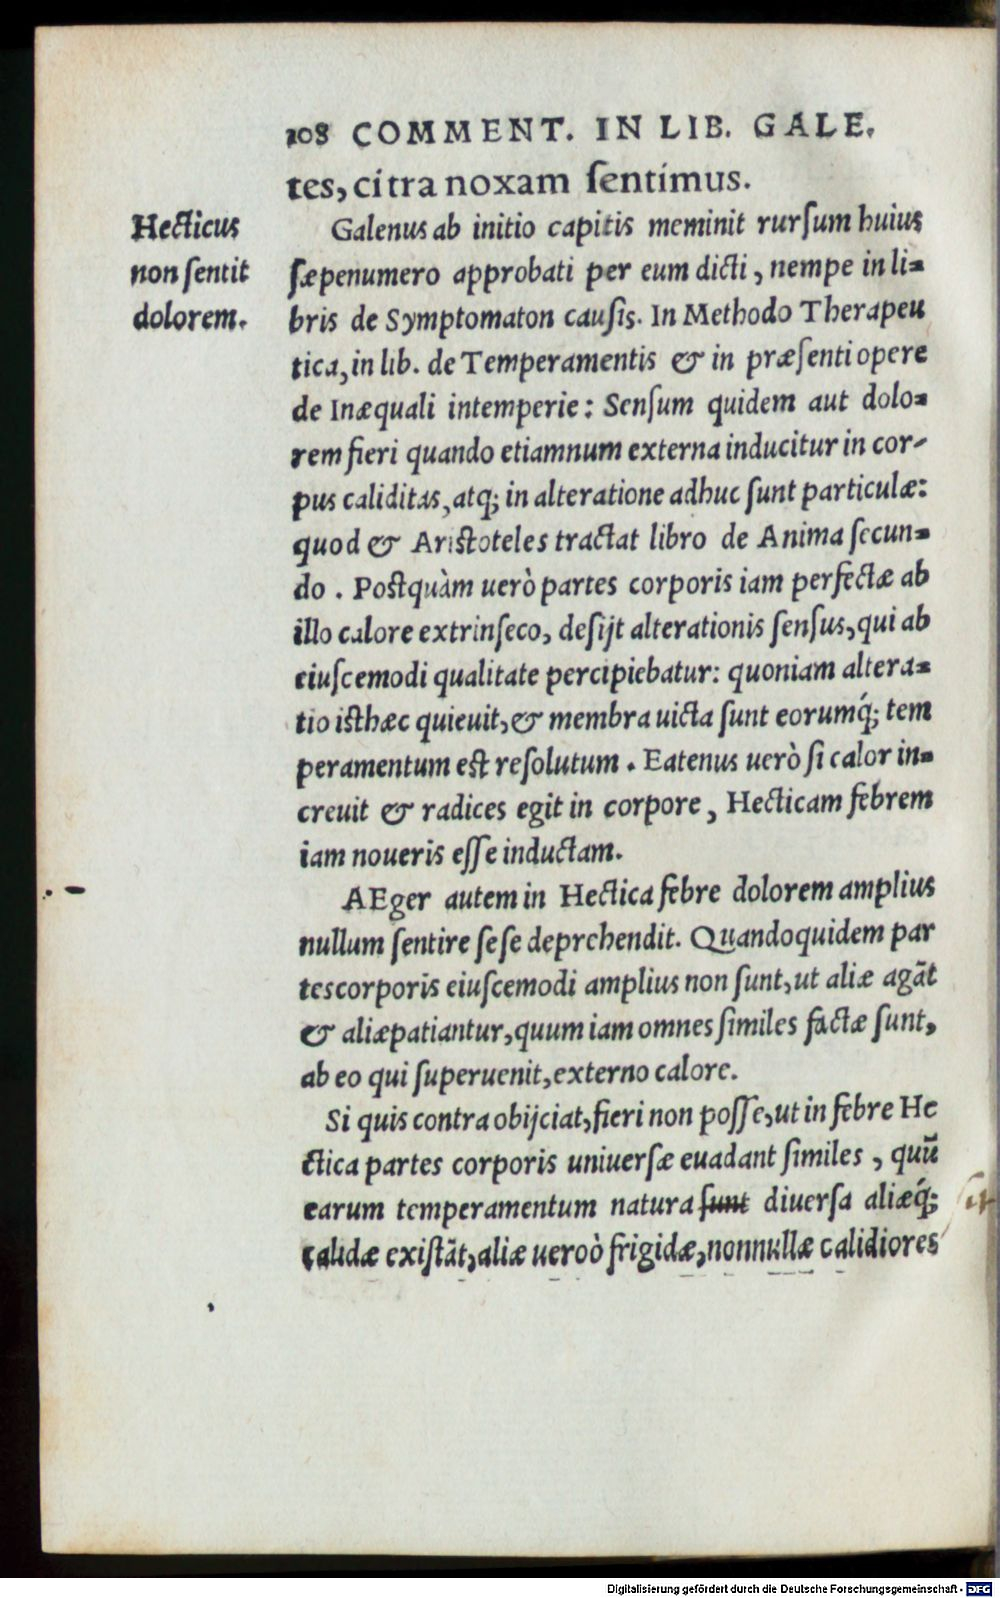 108 COMMENT. IN LIB. GALE.
tes, citra noxam sentimus.
Hecticus
non sentit
dolorem.
Galenus ab initio capitis meminit rursum huius
sæpenumero approbati per eum dicti, nempe in li-
bris de Symptomaton causis. In Methodo Therapeu
tica, in lib. de Temperamentis & in præsenti opere
de Inæquali intemperie: Sensum quidem aut dolo-
rem fieri quando etiamnum externa inducitur in cor-
pus caliditas, atq; in alteratione adhuc sunt particulæ:
quod & Aristoteles tractat libro de Anima secun-
do. Postquàm uerò partes corporis iam perfectæ ab
illo calore extrinseco, desijt alterationis sensus, qui ab
eiuscemodi qualitate percipiebatur: quoniam altera-
tio isthæc quieuit, & membra uicta sunt eorumq́; tem
peramentum est resolutum. Eatenus uerò si calor in-
creuit & radices egit in corpore, Hecticam febrem
iam noueris esse inductam.
AEger autem in Hectica febre dolorem amplius
nullum sentire sese deprehendit. Quandoquidem par
tes corporis eiuscemodi amplius non sunt, ut aliæ agāt
& aliæ patiantur, quum iam omnes similes factæ sunt,
ab eo qui superuenit, externo calore.
Si quis contra obijciat, fieri non posse, ut in febre He
ctica partes corporis uniuersæ euadant similes, quū
earum temperamentum natura sunt diuersa aliæq́; sit
calidæ existāt, aliæ ueroò frigidæ, nonnullæ calidiores
Digitalisierung gefördert durch die Deutsche Forschungsgemeinschaft - DFG